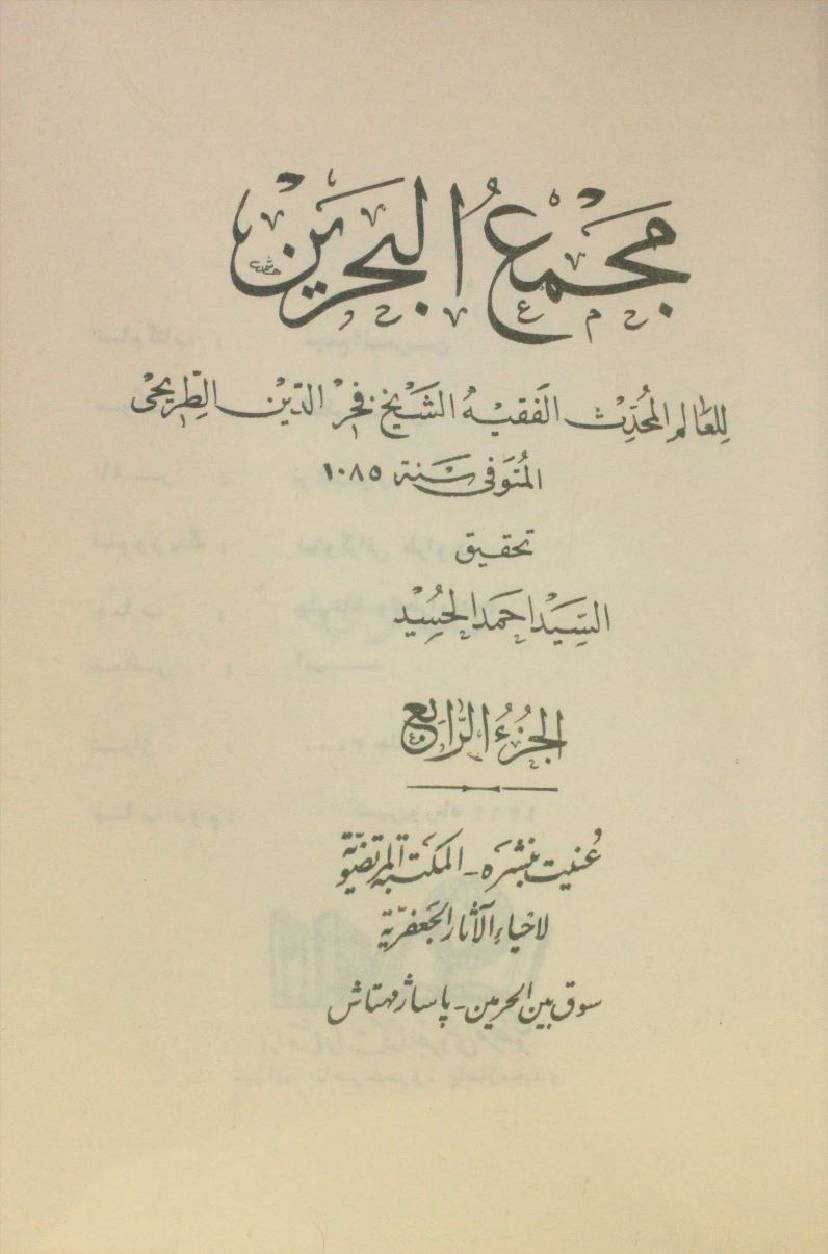 مَجْمَعُ البَحْرَيْن
لِلعَالِمِ المُحَدِّث الفَقيه الشَيْخ فخر الدّين الطّريحى
المُتوَفى سَنة ١٠٨٥
تحقيق
السَّيّد احمَد الحُسيْنى
الجُزءُ الرَّابع
عُنيت بنشره - المكتبة المرتضويّة
لاحْيَاءِ الآثار الجَعفريّة
سوق بين الحرمين - پاساژ مهتاش